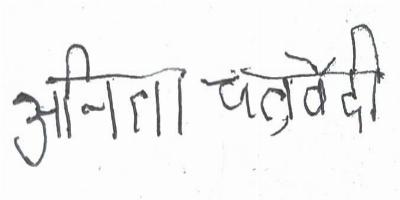 अनिता चतुर्वेदी